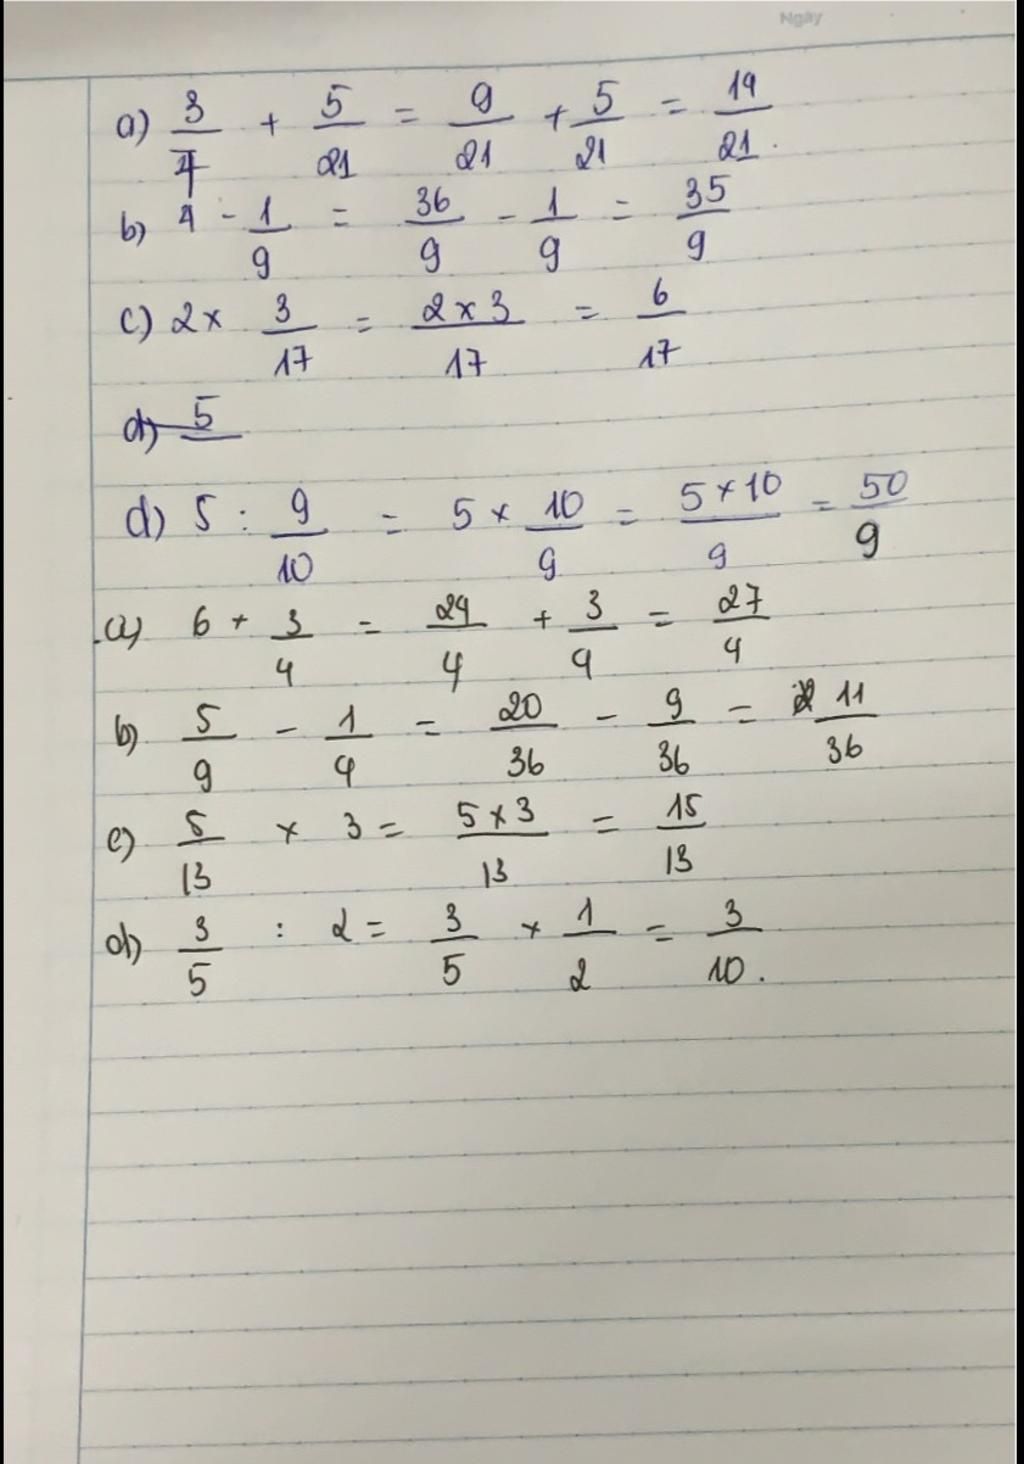 Ngày
a) 3/7 + 5/21 = 9/21 + 5/21 = 14/21.
b) 4 - 1/9 = 36/9 - 1/9 = 35/9
c) 2 x 3/17 = 2 x 3/17 = 6/17
d) 5
d) 5 : 9/10 = 5 x 10/9 = 5 x 10/9 = 50/9
a) 6 + 3/4 = 24/4 + 3/4 = 27/4
b) 5/9 - 1/4 = 20/36 - 9/36 = 11/36
c) 5/13 x 3 = 5 x 3/13 = 15/13
d) 3/5 : 2 = 3/5 x 1/2 = 3/10.